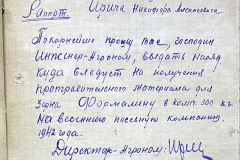 Рапорт.
Покорнейше прошу Вас, господин
Инженер-Агроном, выдать наряд
куда следует на получения
протравительного материала для
зерна Формалину в колич. 300 кг.
На весеннюю посевную компанию
1942 года.
Директор-Агроном: